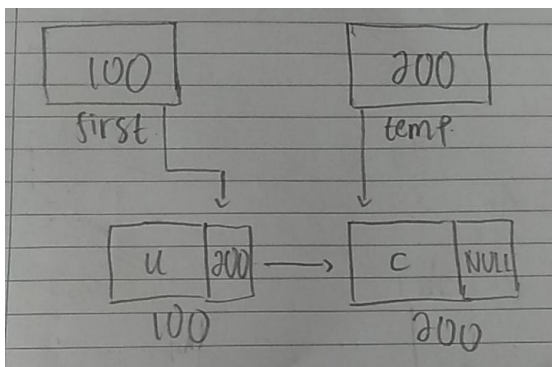 100 200
first temp.
U 200 C NULL
100 200